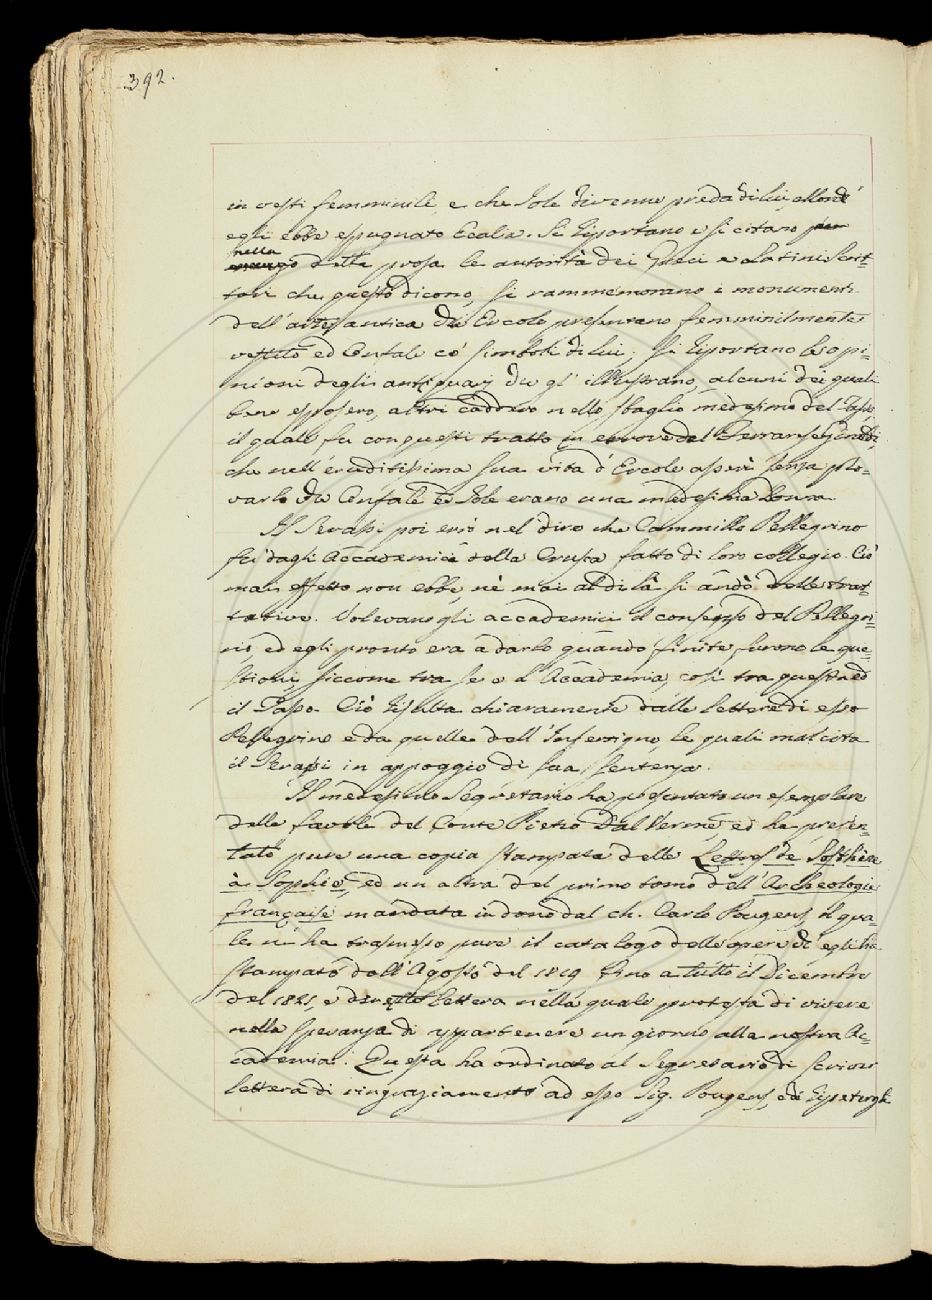 392.
in vesti femminili, e che Iole divenne preda di lui, allorché
egli ebbe espugnato Ecalia. Si riportano e si citano per
nella
prosa le autorità dei Greci e Latini Scrit=
tori che questo dicono, si rammemorano i monumenti
dell'arte antica che Ercole presentano femminilmente
vestito ed Onfale co' simboli di lui; si riportano le opi=
nioni degli antiquarj che gl' illustrano, alcuni dei quali
bene esposero, altri caddero nello sbaglio medesimo del Tasso,
il quale fu con questi tratto in errore dal Ferrarese Giraldi,
che nell'eruditissima sua vita d'Ercole asserì senza pro=
varlo che Onfale ed Iole erano una medesima Donna.
Il Serassi poi errò nel dire che Cammillo Pellegrino
fu dagli Accademici della Crusca fatto di loro collegio. Ciò
mai effetto non ebbe, nè mai al di là si andò delle trat=
tative. Volevano gli accademici il consenso del Pellegri=
no, ed egli pronto era a darlo quando finite furono le que=
stioni, siccome tra se e l'Accademia, così tra questa ed
il Tasso. Ciò risulta chiaramente dalle lettere di esso
Pellegrino e da quelle dell'Inferrigno, le quali mal cita
il Serassi in appoggio di sua sentenza.
Il medesimo Segretario ha presentato un esemplare
delle favole del Conte Pietro Dal Verme, ed ha presen=
tato pure una copia stampata delle Lettres de Sosthène
à Sophie, ed un altra del primo tomo dell'Archeologie
française mandata in dono dal ch. Carlo Pougens, il qua=
le ci ha trasmesso pure il catalogo delle opere ch' egli ha
stampato dall'Agosto del 1819 fino a tutto il Dicembre
del 1821, e diretto lettera nella quale protesta di vivere
nella speranza di appartenere un giorno alla nostra Ac=
cademia. Questa ha ordinato al Segretario di scriver
lettera di ringraziamento ad esso Sig. Pougens, ed